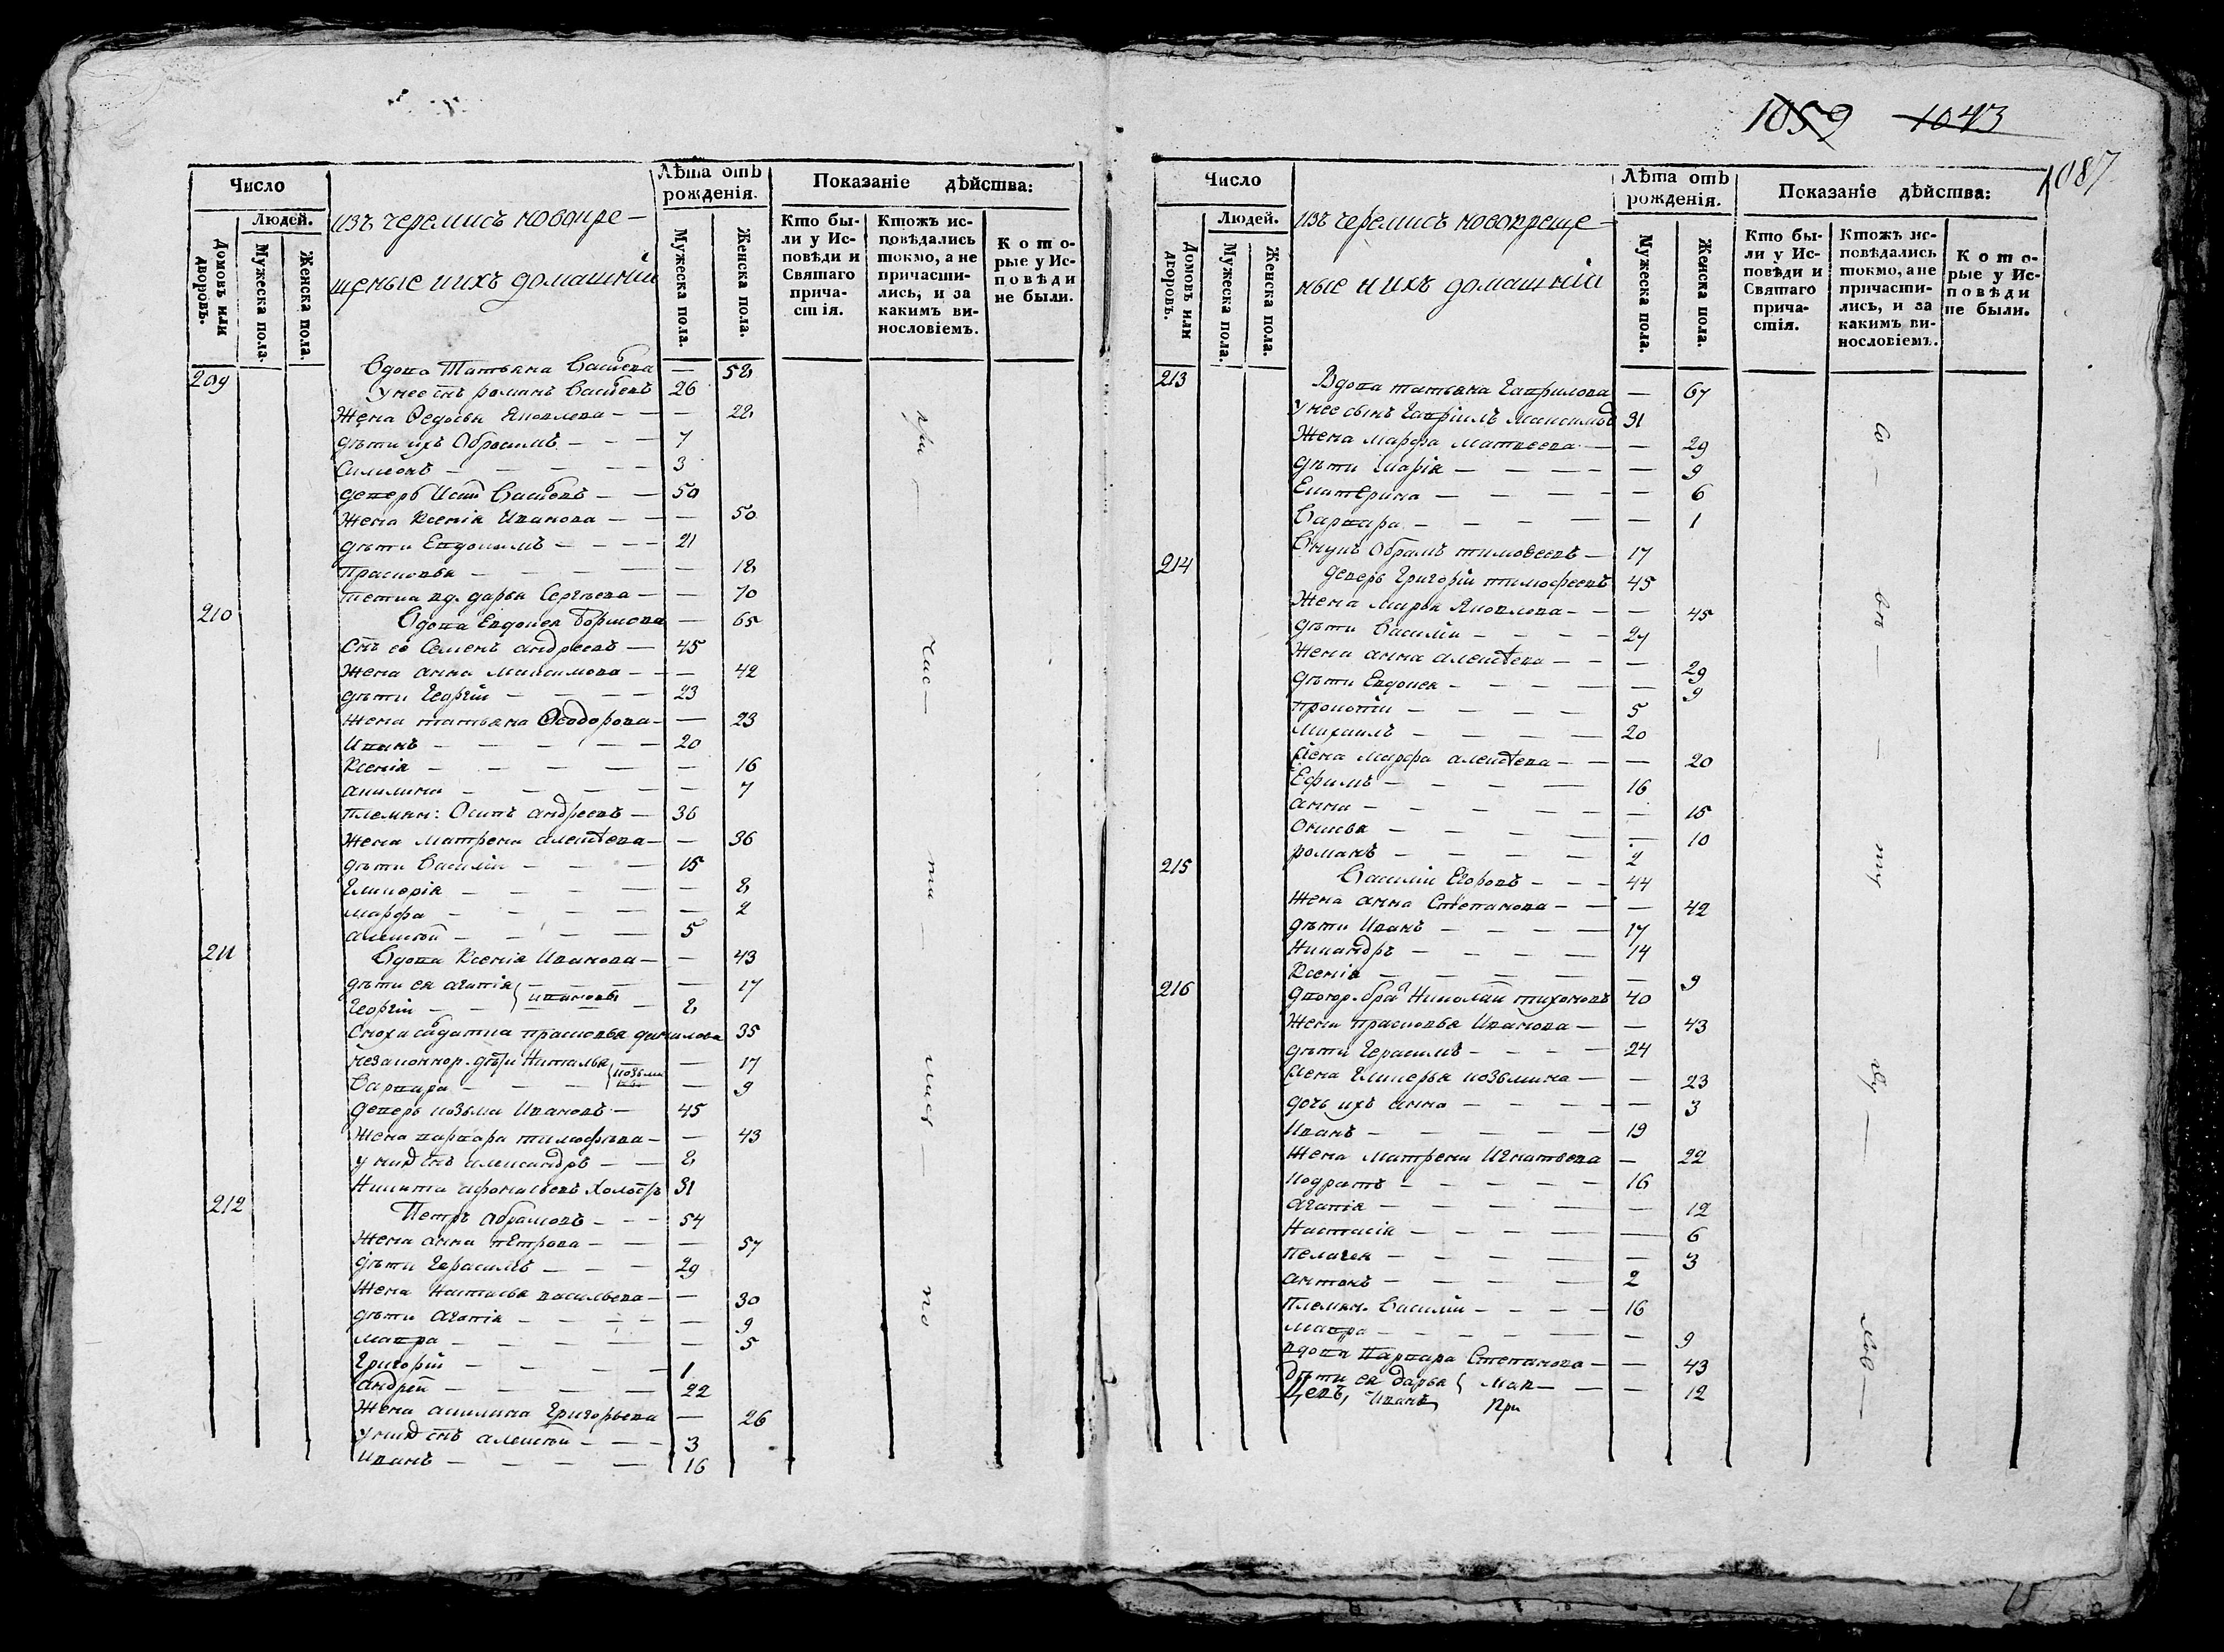 1059 1043
1087
Число
Людей.
Домовъ или дворовъ.
Мужеска пола.
Женска пола.
изъ черемисъ новокре-
щеные и ихъ домашнїи
Лѣта отъ рожденія.
Мужеска пола.
Женска пола.
Показаніе дѣйства:
Кто бы-
ли у Ис-
повѣди и
Святаго
прича-
стія.
Ктожъ ис-
повѣдались
токмо, а не
причасти-
лись, и за
какимъ ви-
нословіемъ.
Кото-
рые у Ис-
повѣди
не были.
209 Вдова Татьяна — 58
у нее снъ романъ 26
Жена Ѳедосья Яковлева — — — 28
дѣти ихъ Обросимъ — — — 7
Симеонъ — — — — — 3
деверь — — 50
Жена Ксенія Иванова — — — 50
дѣти Евдокимъ — — — — 21
Прасковья — — — — — 18
тетка вд. дарья Сергѣева — — 70
210 Вдова Евдокея — 65
Снъ ее Семенъ андреевъ — 45
Жена анна Максимова — — — 42
дѣти Георгїй — — — — 23
Жена татьяна Ѳеодорова — — 23
Иванъ — — — — — 20
Ксенія — — — — — 16
акилина — — — — — — 7
племян: Осипъ андреевъ — 36
Жена Матрена алексѣева — — 36
дѣти Василїи — — — 15
Гликерія — — — — — 8
марфа — — — — — 2
алексѣй — — — — 5
211 Вдова Ксенія Иванова — — 43
дѣти ея агапія — 17
Георгїи — — ивановы — 8
Сноха салдатка прасковья данилова 35
незаконнор. дѣти Наталья — 17
Варвара — — — козьмины — 9
деверь козьма Ивановъ — 45
Жена варвара тимофѣева — — 43
у нихъ снъ александръ — — 8
Никита афонасьевъ холостъ 31
212 Петръ абрамовъ — — — 54
Жена анна петрова — — — 57
дѣти Герасимъ — — — 29
Жена Настасья васильева — — 30
дѣти агапія — — — — — 9
мавра — — — — — — 5
Григорїй — — — — 1
андрей — — — — — 22
Жена акилина Григорьева — 26
у нихъ снъ алексѣй — — — 3
Иванъ — — — — — 16
при — час — та — шеѣ — по
Число
Людей.
Домовъ или дворовъ.
Мужеска пола.
Женска пола.
изъ черемисъ новокреще-
ные и ихъ домашнїи
Лѣта отъ рожденія.
Мужеска пола.
Женска пола.
Показаніе дѣйства:
Кто бы-
ли у Ис-
повѣди и
Святаго
прича-
стія.
Ктожъ ис-
повѣдались
токмо, а не
причасти-
лись, и за
какимъ ви-
нословіемъ.
Кото-
рые у Ис-
повѣди
не были.
213 Вдова татьяна Гаврилова — 67
у нее сынъ Гаврїилъ Максимовъ 31
Жена марфа матвеева — — 29
дѣти марія — — — — — 9
Екатерина — — — — — 6
Варвара — — — — — 1
Внукъ Обрамъ тимоѳеевъ — 17
214 деверь Григорїи тимофеевъ 45
Жена марья Яковлева — — — 45
дѣти Василїи — — — — 27
Жена анна алексѣева — — — 29
дѣти Евдокея — — — — — 9
прокопїи — — — — 5
Михаилъ — — — — 20
Жена марфа алексѣева — — — 20
Ефимъ — — — — 16
анна — — — — — 15
— — — — — 10
романъ — — — — 2
215 Василїи Егоровъ — — — 44
Жена анна Степанова — — — 42
дѣти Иванъ — — — — 17
Никандръ — — — — 14
Ксенія — — — — — 9
216 двоюр. бра Николай тихоновъ 40
Жена прасковья Иванова — — 43
дѣти Герасимъ — — — — 24
Жена Гликерья козьмина — — 23
дочь ихъ анна — — — — — 3
Иванъ — — — — — 19
Жена Матрена Игнатьева — 22
кодратъ — — — — — 16
агапія — — — — — 12
Настасія — — — — — 6
пелагея — — — — — 3
антонъ — — — — 2
племян. Василїи — — — — 16
мавра — — — — — — 9
вдова варвара Степанова — — 43
дѣти ея дарья — — — 12
Иванъ При
со — въ — ту — — — —